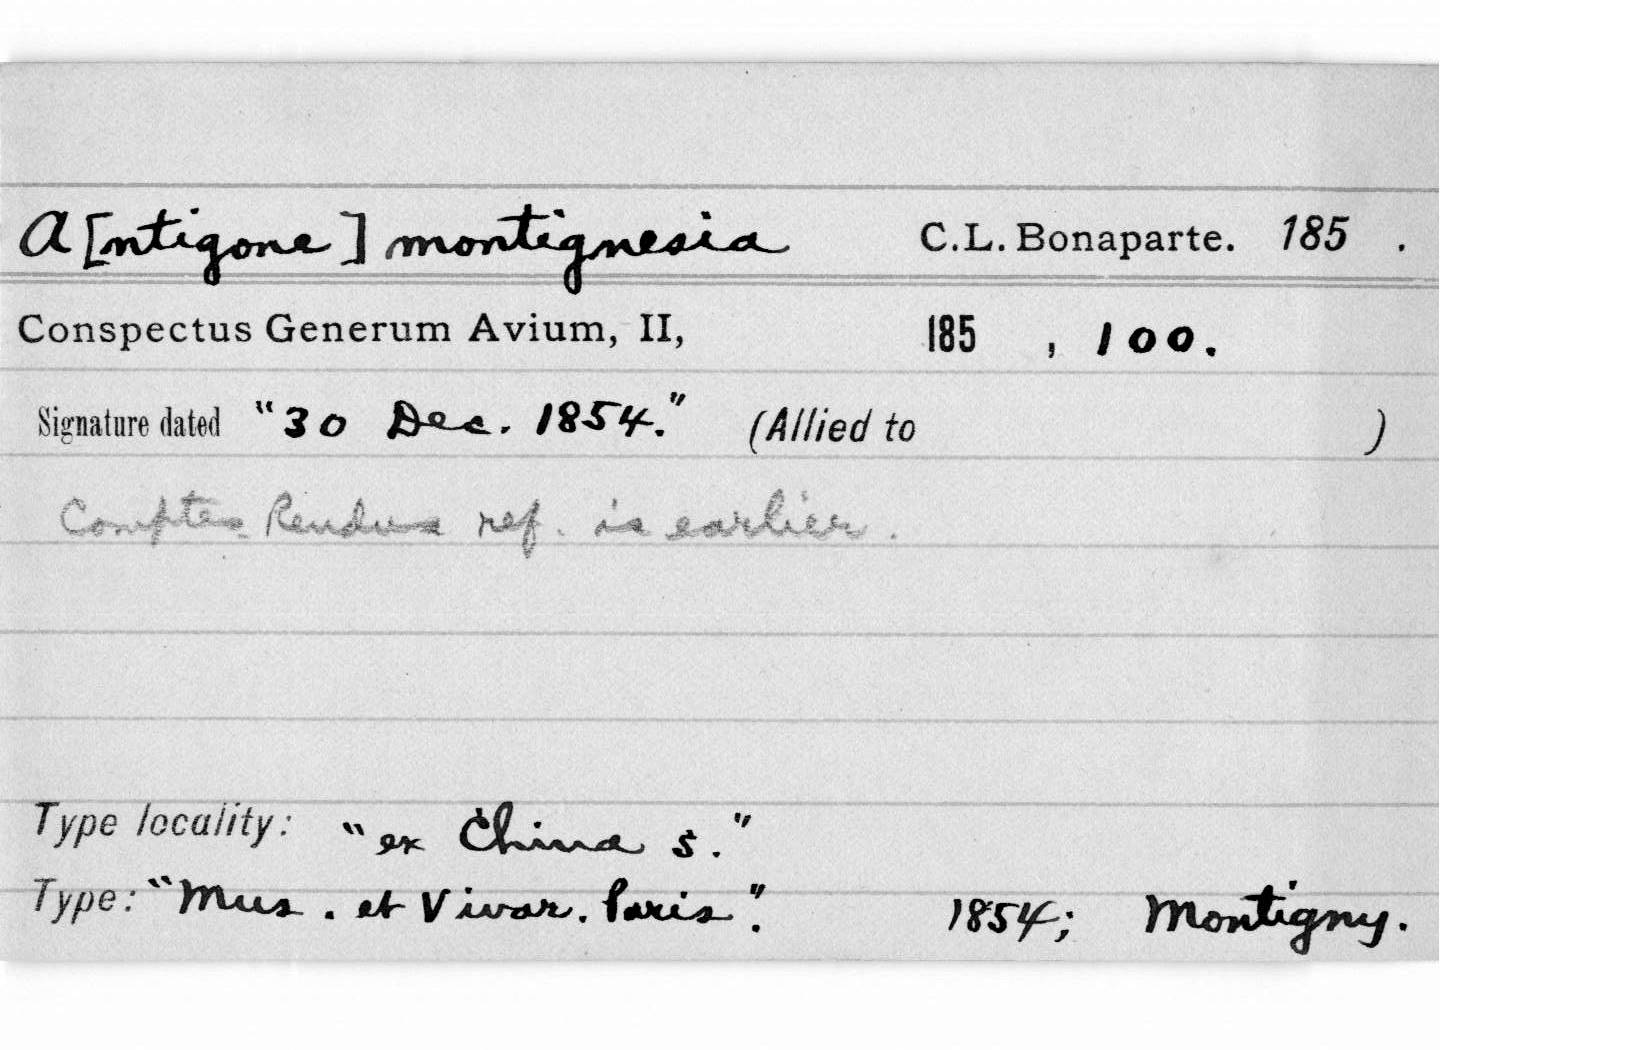 A[ntigone] montignesia C.L. Bonaparte. 185 .
Conspectus Generum Avium, II, 185 , 100.
Signature dated "30 Dec. 1854." (Allied to )
Comptes Rendus ref. is earlier.
Type locality: "ex China s."
Type: "Mus. et Vivar. Paris". 1854; Montigny.